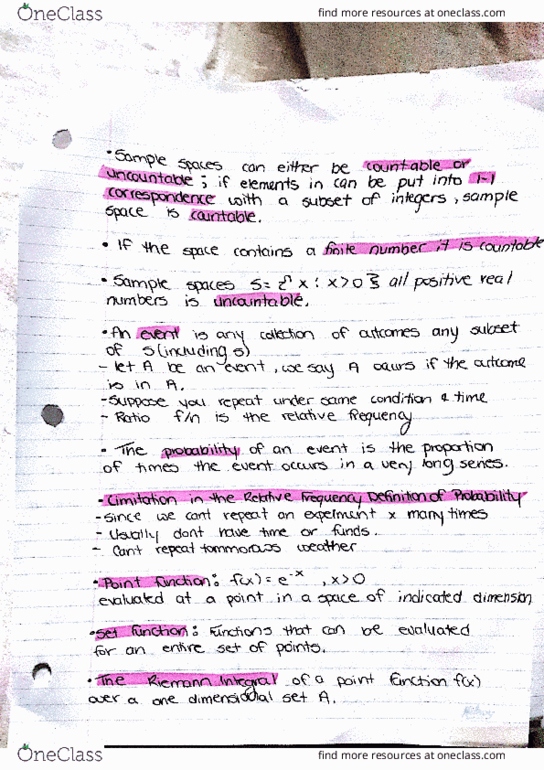 OneClass
find more resources at oneclass.com
• Sample spaces can either be countable or
uncountable; if elements in can be put into 1-1
correspondence with a subset of integers, sample
space is countable.
• If the space contains a finite number it is countable
• Sample spaces S= { x : x>0 } all positive real
numbers is uncountable.
• An event is any collection of outcomes any subset
of S (including S)
- let A be an event, we say A occurs if the outcome
is in A.
- Suppose you repeat under same condition & time
- Ratio f/n is the relative frequency
• The probability of an event is the proportion
of times the event occurs in a very long series.
• Limitation in the Relative Frequency Definition of Probability
- since we cant repeat an experiment x many times
- Usually dont have time or funds.
- Cant repeat tommorows weather
• Point function: f(x) = e^-x , x>0
evaluated at a point in a space of indicated dimension
• Set function: functions that can be evaluated
for an entire set of points.
• The Riemann Integral of a point function f(x)
over a one dimensional set A.
OneClass
find more resources at oneclass.com